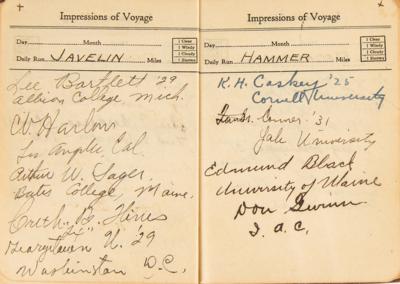 Impressions of Voyage
Day Month
1 Clear
1 Windy
1 Cloudy
1 Stormy
Daily Run JAVELIN Miles
Lee Bartlett '29
Albion College Mich.
C.V. Harlow
Los Angeles Cal.
Arthur W. Sager
Bates College Maine.
Creth B. Hines
Georgetown U. '29
Washington D.C.
Impressions of Voyage
Day Month
1 Clear
1 Windy
1 Cloudy
1 Stormy
Daily Run HAMMER Miles
K. H. Caskey '25
Cornell University
Conner '31
Yale University
Edmund Black
University of Maine
Don Gwinn